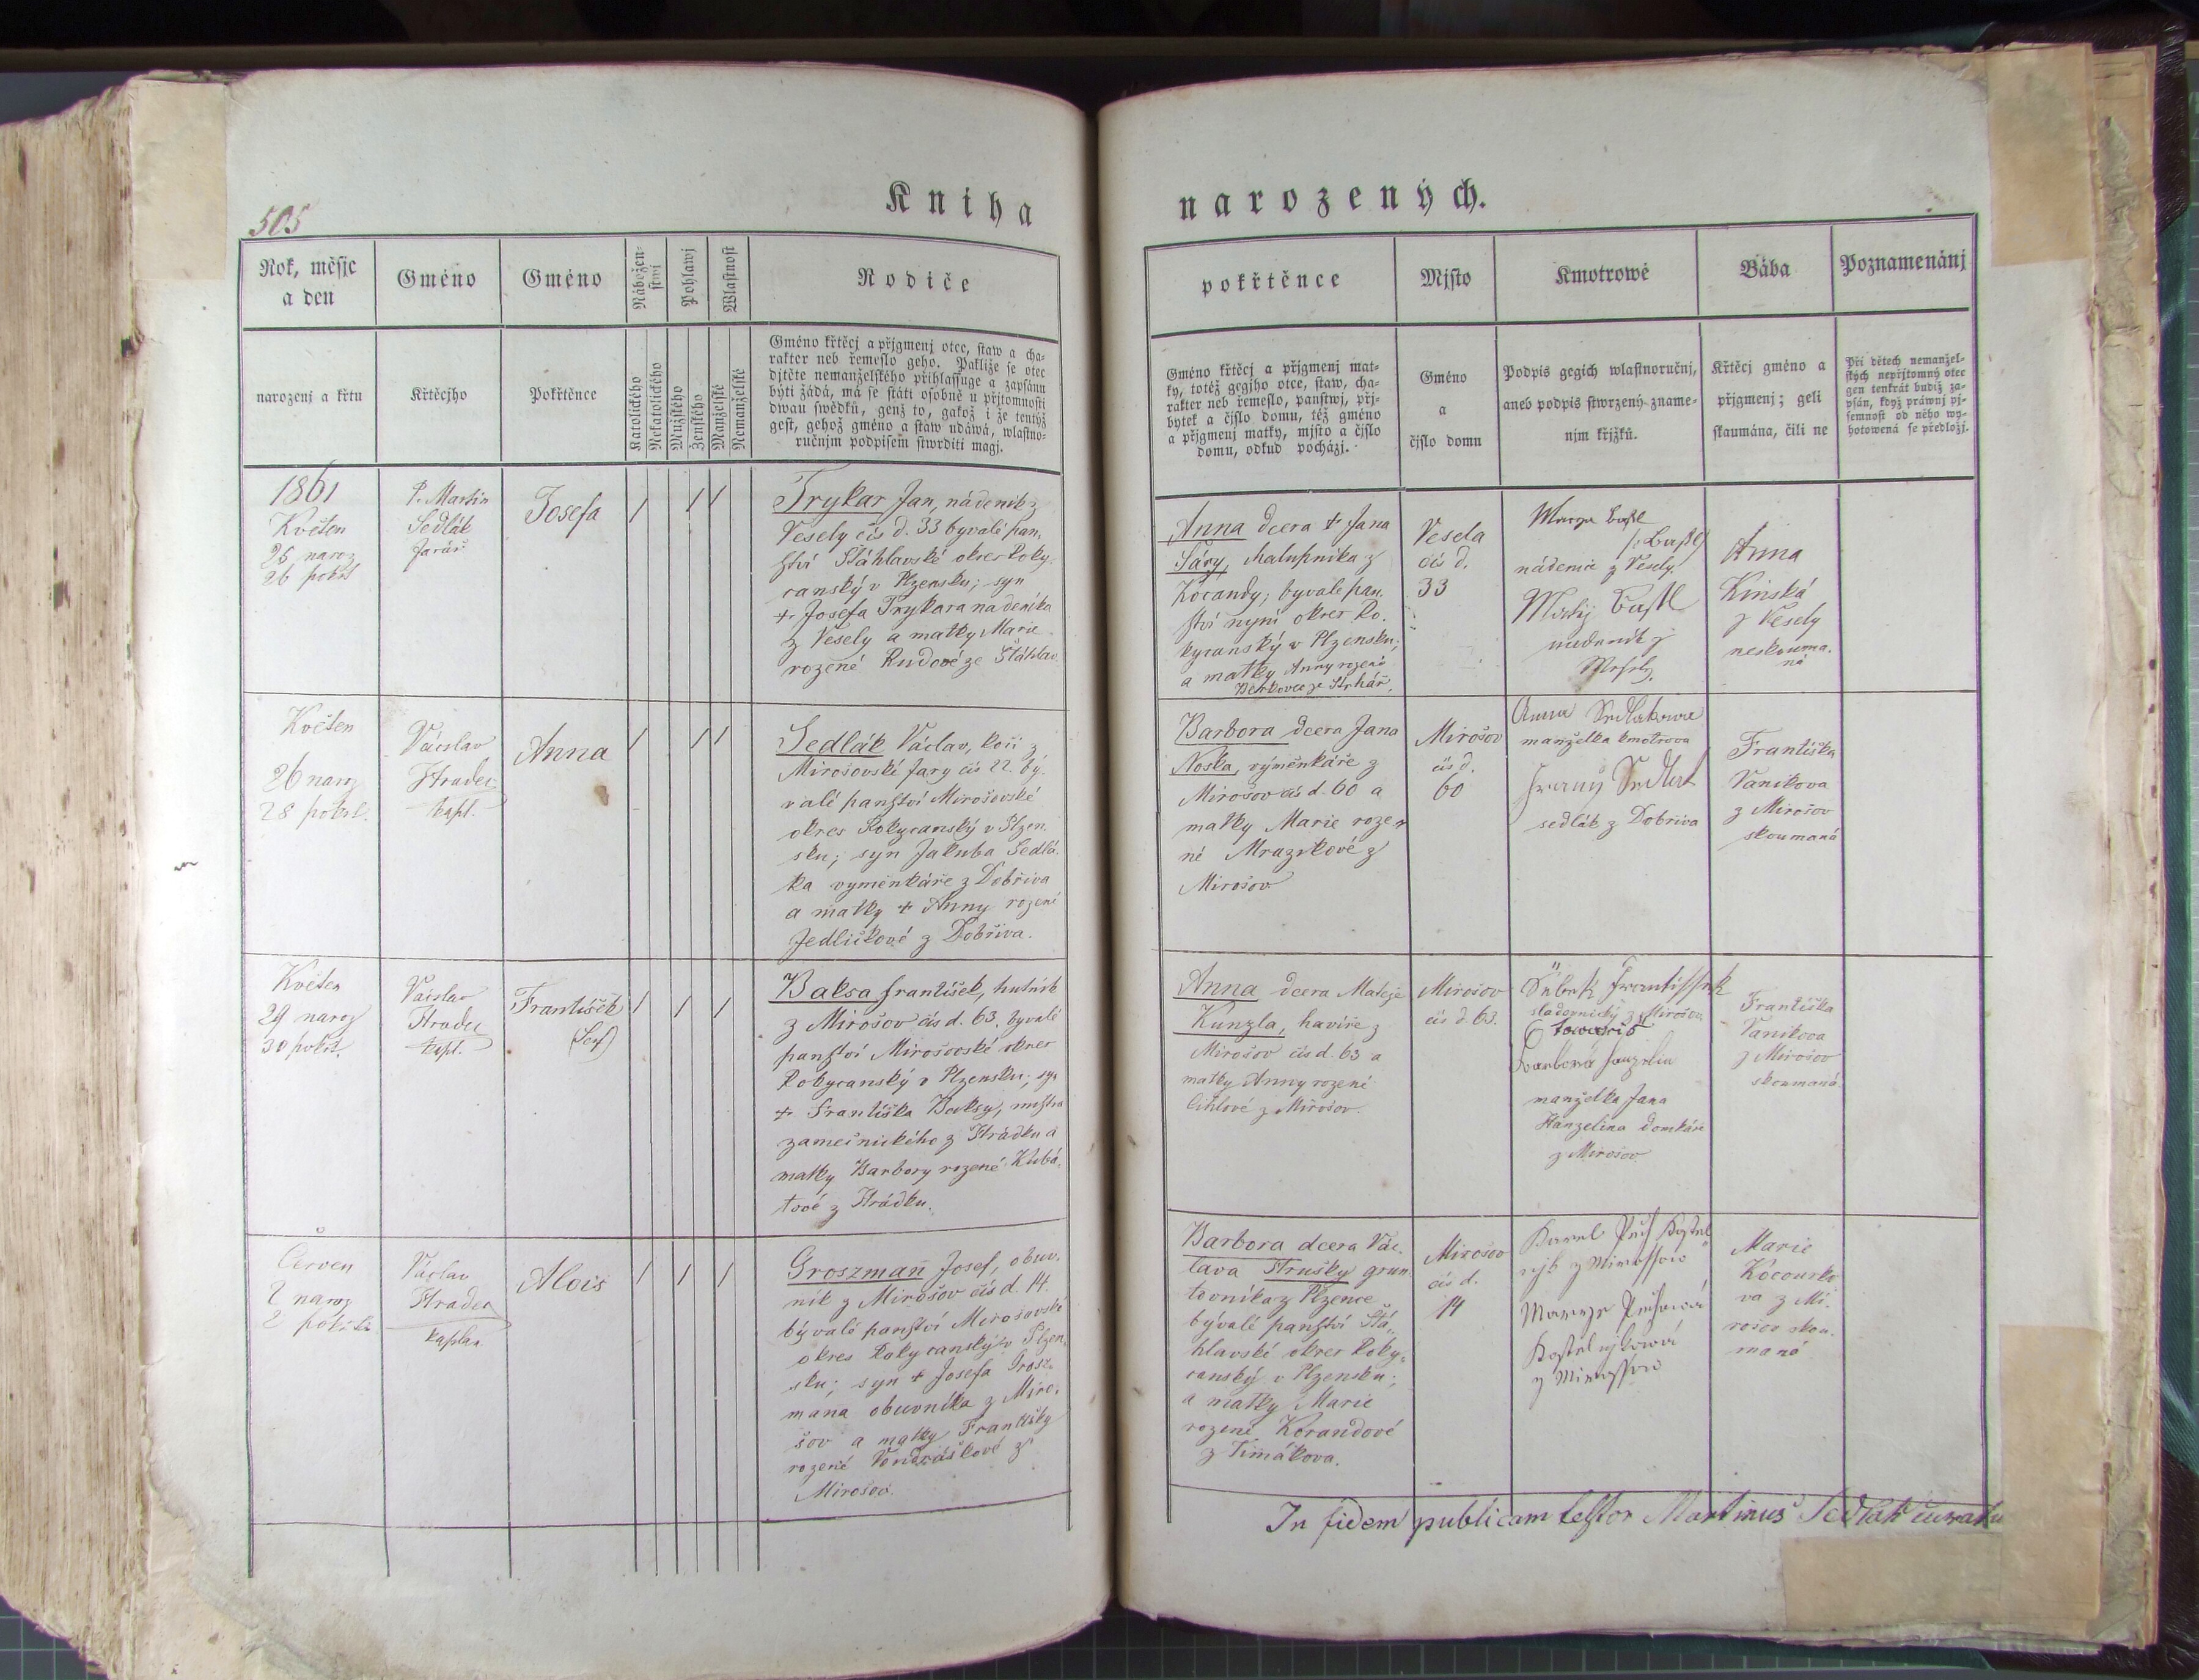 Kniha
narozených.
505
Rok, měsjc
a den
Gméno
Gméno
Nábožen-
stwj
Pohlawj
Wlastnost
Rodiče
narozenj a křtu
Křtěcjho
Pokřtěnce
Katolického
Nekatolického
Mužského
Ženského
Manželské
Nemanželské
Gméno křtěcj a přjgmenj otce, staw a cha-
rakter neb řemeslo geho. Pakliže se otec
djtěte nemanželského přihlassuge a zapsánu
býti žádá, má se státi osobně u přjtomnosti
dwau swědků, genž to, gakož i že tentýž
gest, gehož gméno a staw udáwá, wlastno-
ručnjm podpisem stwrditi magj.
1861
Květen
25 naroz
26 pokřt
P. Martin
Sedlák
farář
Josefa
/ / /
Trykar Jan, nádeník z
Vesely čís d. 33 byvalé pan-
ství Stáhlavské okres Roky-
canský v Plzensku; syn
+ Josefa Trykara nádeníka
z Vesely a matky Marie
rozené Rudové ze Stáhlav.
Květen
26 naroz
28 pokřt.
Václav
Hradec
kapl.
Anna
/ / /
Sedlák Václav, kočí z
Mirošovské fary čís 22. bý-
valé panství Mirošovské
okres Rokycanský v Plzen
sku; syn Jakuba Sedlá-
ka vyměnkáře z Dobřiva
a matky + Anny rozené
Jedličkové z Dobřiva.
Květen
29 naroz
30 pokřt.
Václav
Hradec
kapl.
František
/ / /
Baksa František, hutník
z Mirošov čís d. 63. byvalé
panství Mirošovské okres
Rokycanský v Plzensku; syn
+ Františka Baksy, mistra
zamečnického z Hrádku a
matky Barbory rozené Kubá-
tové z Hrádku.
Červen
2 naroz
2 pokřt.
Václav
Hradec
kaplan
Alois
/ / /
Groszman̄ Josef, obuv-
ník z Mirošov čís d. 14.
bývalé panství Mirošovské
okres Rokycanský v Plzen-
sku; syn + Josefa Grosz-
mana obuvníka z Miro-
šov a matky Františky
rozené Vondráškové z
Mirošov.
pokřtěnce
Mjsto
Kmotrowé
Bába
Poznamenánj
Gméno křtěcj a přjgmenj mat-
ky, totéž gegjho otce, staw, cha-
rakter neb řemeslo, panstwj, přj-
bytek a čjslo domu, též gméno
a přjgmenj matky, mjsto a čjslo
domu, odkud pocházj.
Gméno
a
čjslo domu
Podpis gegich wlastnoručnj,
aneb podpis stwrzený zname-
njm křjžků.
Křtěcj gméno a
přjgmenj; geli
skaumána, čili ne
Při dětech nemanžel-
ských nepřjtomný otec
gen tenkrát budiž za-
psán, když práwnj pj-
semnost od něho wy-
hotowená se předložj.
Anna dcera + Jana
Sáry, chalupníka z
Kocandy; byvalé pan-
ství nyní okres Ro-
kycanský v Plzensku;
a matky Anny rozené
Vesela
čís d.
33
nádenice z Vesely.
Anna
Kinská
z Vesely
neskouma-
ná
Barbora dcera Jana
Noska, výměnkáře z
Mirošov čís d. 60 a
matky Marie roze-
né Mrazkové z
Mirošov
Mirošov
čís d.
60
Anna Sedlakowa
manželka kmotrova
Franz Sedlak
sedlák z Dobřiva
Františka
Vanikova
z Mirošov
skoumaná
Anna dcera Mateje
Kunzla, havíře z
Mirošov čís d. 63 a
matky Anny rozené
Cihlové z Mirošov.
Mirošov
čís d. 63.
Frantissek
sladovnický z Mirošov
towariš
manželka Jana
Hanzelina domkáře
z Mirošov
Františka
Vanikova
z Mirošov
skoumaná.
Barbora dcera Vác-
lava Hrušky grun-
tovníka z Plzence
bývalé panství Štá-
hlavské okres Roky-
canský v Plzensku;
a matky Marie
rozené Korandové
z Timákova.
Mirošov
čís d.
14
Marie
Kocourko
va z Mi-
rošov skou-
maná
In fidem publicam testor Martinus Sedlák curatus